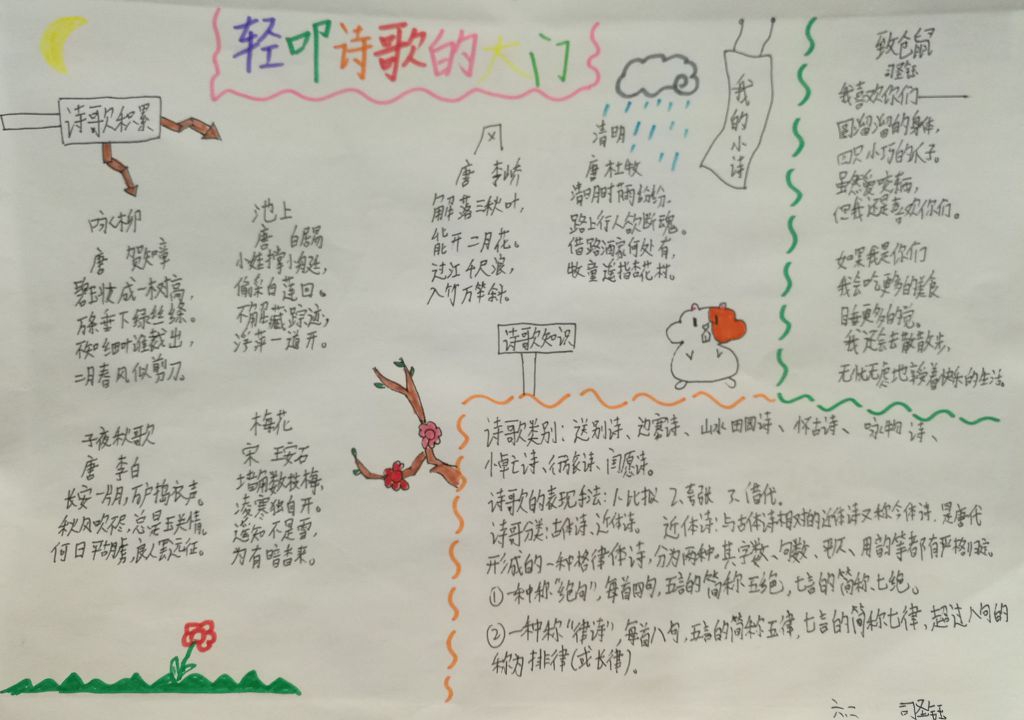 轻叩诗歌的大门
诗歌积累
咏柳
唐 贺知章
碧玉妆成一树高,
万条垂下绿丝绦。
不知细叶谁裁出,
二月春风似剪刀。
池上
唐 白居易
小娃撑小艇,
偷采白莲回。
不解藏踪迹,
浮萍一道开。
子夜秋歌
唐 李白
长安一片月,万户捣衣声。
秋风吹不尽,总是玉关情。
何日平胡虏,良人罢远征。
梅花
宋 王安石
墙角数枝梅,
凌寒独自开。
遥知不是雪,
为有暗香来。
风
唐 李峤
解落三秋叶,
能开二月花。
过江千尺浪,
入竹万竿斜。
清明
唐 杜牧
清明时雨纷纷,
路上行人欲断魂。
借路酒家何处有,
牧童遥指杏花村。
我的小诗
致仓鼠
司圣钰
我喜欢你们——
圆溜溜的身体,
四只小巧的爪子。
虽然爱交朋,
但我还是喜欢你们。
如果我是你们
我会吃更多的粮食
睡更多的觉。
我还会去散散步,
无忧无虑地享受着快乐的生活。
诗歌知识
诗歌类别:送别诗、边塞诗、山水田园诗、怀古诗、咏物诗、
悼亡诗、行旅诗、闺愿诗。
诗歌的表现手法:1.比拟 2.夸张 3.借代
诗哥分类:古体诗、近体诗。 近体诗:与古体诗相对的近体诗又称今体诗.是唐代
形成的一种格律体诗,分为两种.其字数、句数、平仄、用韵等都有严格规定。
①一种称"绝句",每首四句,五言的简称五绝,七言的简称七绝。
②一种称"律诗",每首八句,五言的简称五律,七言的简称七律、超过八句的
称为排律(或长律)。
六二 司圣钰